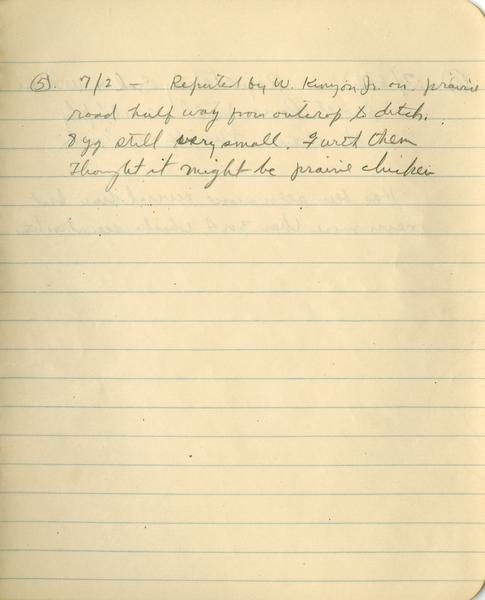 (5). 7/2 – Reported by W. Kenyon Jr. on prairie
road half way from outcrop to ditch.
8 yg still very small. ♀ with them
Thought it might be prairie chicken